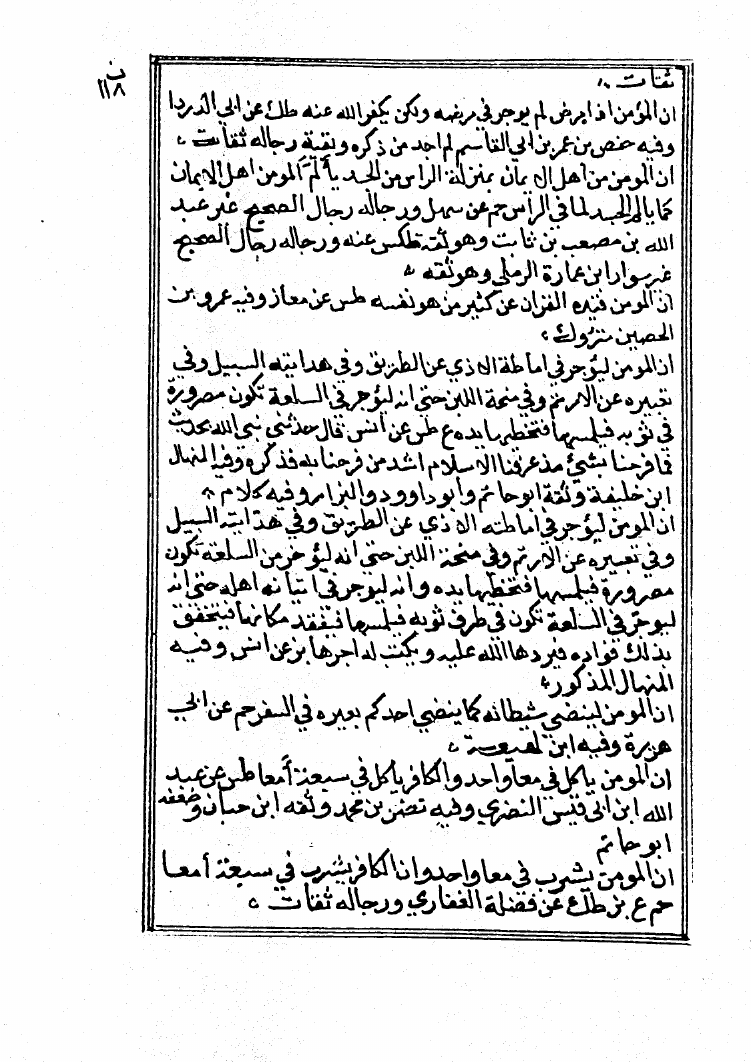 ن
١١٨
ثقات ه
ان المؤمن اذا مرض لم يوجر في مرضه ولكن يكفر الله عنه طك عن ابي الدردا
وفيه حفص بن عمر بن ابي القاسم لم اجد من ذكره وبقية رجاله ثقات ه
ان المومن من اهل الايمان بمنزلة الراس من الجسد يألم المومن اهل الايمان
كما يالم الجسد لما في الرأس حم عن سهل ورجاله رجال الصحيح غير عبد
الله بن مصعب بن ثابت وهو ثقة طكس عنه ورجاله رجال الصحيح
غير سوار ابن عمارة الرملي وهو ثقه ه
ان المومن قيده القران عن كثير من هو نفسه طس عن معاذ وفيه عمرو بن
الحصين متروك ه
ان المومن ليؤجر في اماطة الاذي عن الطريق وفي هدايته السبيل وفي
تعبيره عن الارتم وفي منحة اللبن حتي انه ليؤجر في السلعة تكون مصرورة
في ثوبه فيلمسها فتخطيها يده ع طس عن انس قال حدثني نبي الله بحديث
فما فرحنا بشيئ مذ عرفنا الاسلام اشد من فرحنا به فذكره وفيه المنهال
ابن خليفة وثقة ابو حاتم وابو داوود والبزار وفيه كلام ه
ان المومن ليؤجر في اماطته الاذي عن الطريق وفي هدايته السبيل
وفي تعبيره عن الارتم وفي منحة اللبن حتي انه ليؤجر من السلعة تكون
مصرورة فيلمسها فتخطيها يده وانه ليوجر في اتيانه اهله حتي انه
ليوجر في السلعة تكون في طرف ثوبه فيلمسها فيفقد مكانها فيخفق
بذلك فواده فيردها الله عليه ويكتب له اجرها بز عن انس وفيه
المنهال المذكور ه
ان المومن لينضي شيطانه كما ينضي احدكم بعيره في السفر حم عن ابي
هريرة وفيه ابن لهيعة ه
ان المومن ياكل في معا واحد والكافر ياكل في سبعة أمعا طس عن عبد
الله ابن ابي قيس النضري وفيه نصر بن محمد وثقه ابن حبان وضعفه
ابو حاتم
ان المومن يشرب في معا واحد وان الكافر يشرب في سبعة أمعا
حم ع بز طك ع عن فضلة الغفاري ورجاله ثقات ه